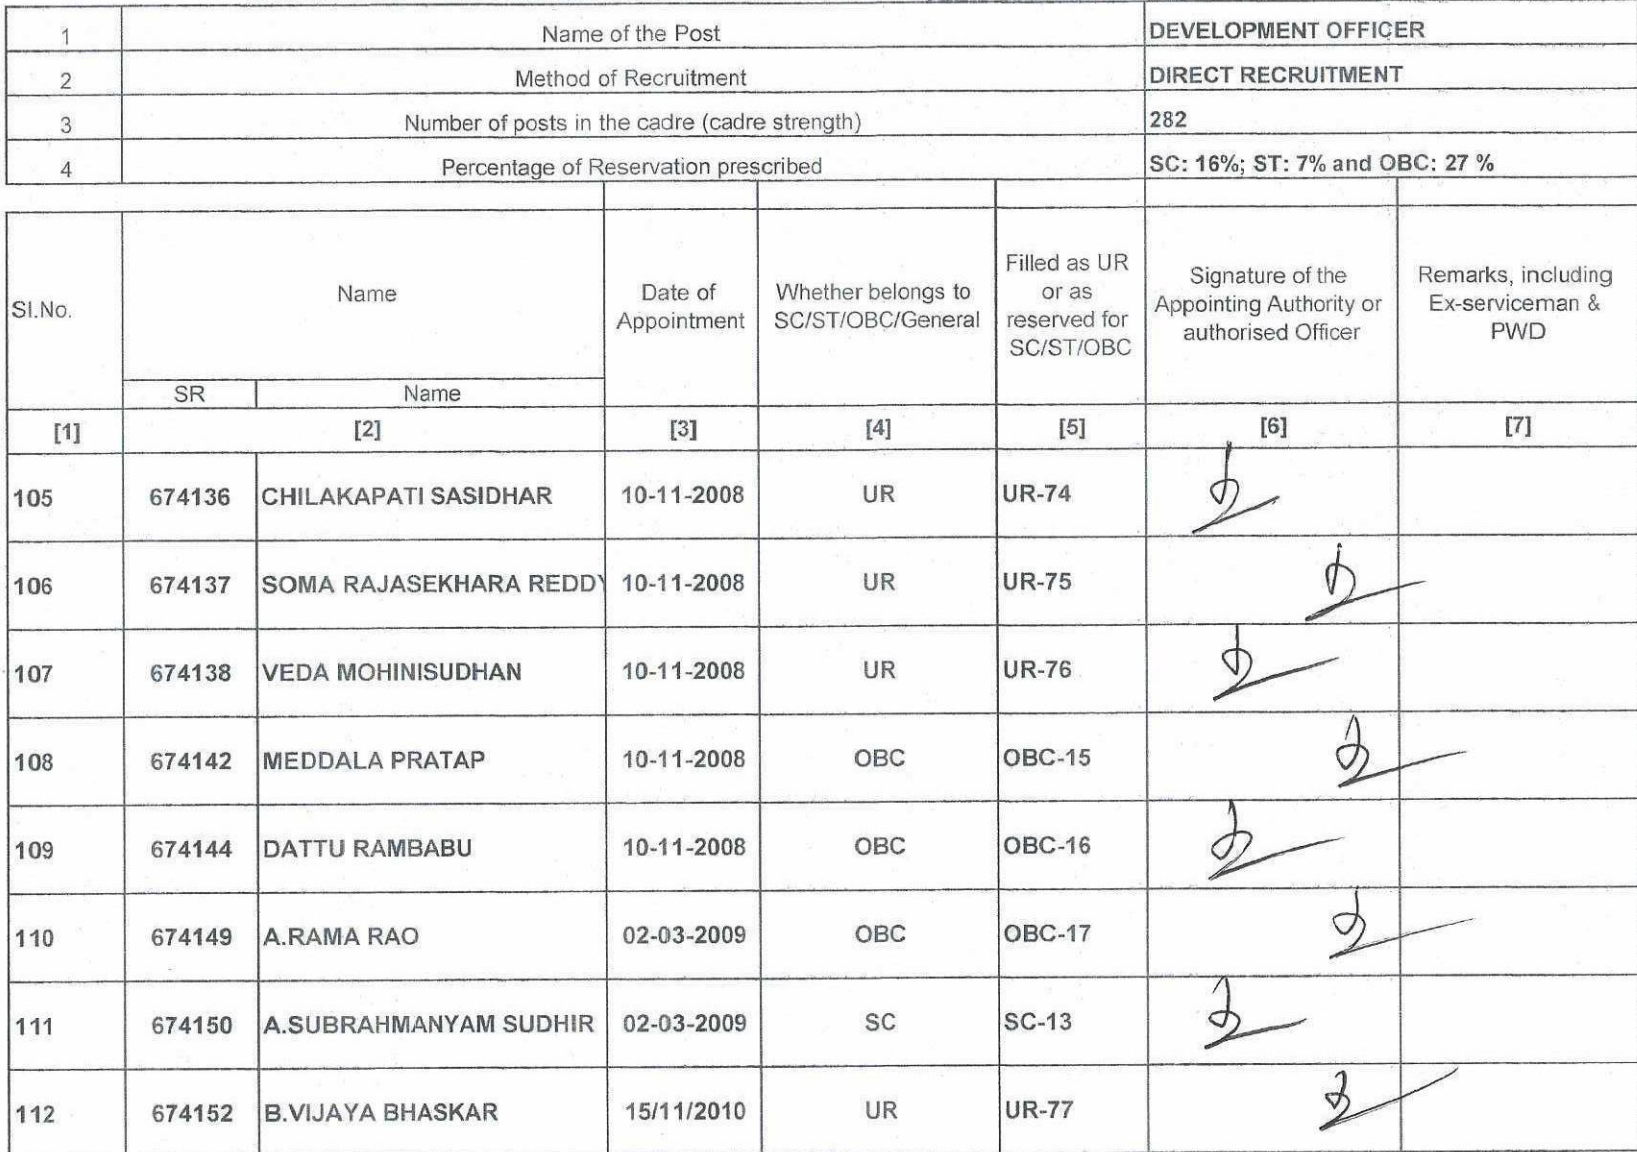 1 Name of the Post DEVELOPMENT OFFICER
2 Method of Recruitment DIRECT RECRUITMENT
3 Number of posts in the cadre (cadre strength) 282
4 Percentage of Reservation prescribed SC: 16%; ST: 7% and OBC: 27 %
Sl.No.
Name
Date of
Appointment
Whether belongs to
SC/ST/OBC/General
Filled as UR
or as
reserved for
SC/ST/OBC
Signature of the
Appointing Authority or
authorised Officer
Remarks, including
Ex-serviceman &
PWD
SR Name
[1] [2] [3] [4] [5] [6] [7]
105 674136 CHILAKAPATI SASIDHAR 10-11-2008 UR UR-74
106 674137 SOMA RAJASEKHARA REDDY 10-11-2008 UR UR-75
107 674138 VEDA MOHINISUDHAN 10-11-2008 UR UR-76
108 674142 MEDDALA PRATAP 10-11-2008 OBC OBC-15
109 674144 DATTU RAMBABU 10-11-2008 OBC OBC-16
110 674149 A.RAMA RAO 02-03-2009 OBC OBC-17
111 674150 A.SUBRAHMANYAM SUDHIR 02-03-2009 SC SC-13
112 674152 B.VIJAYA BHASKAR 15/11/2010 UR UR-77